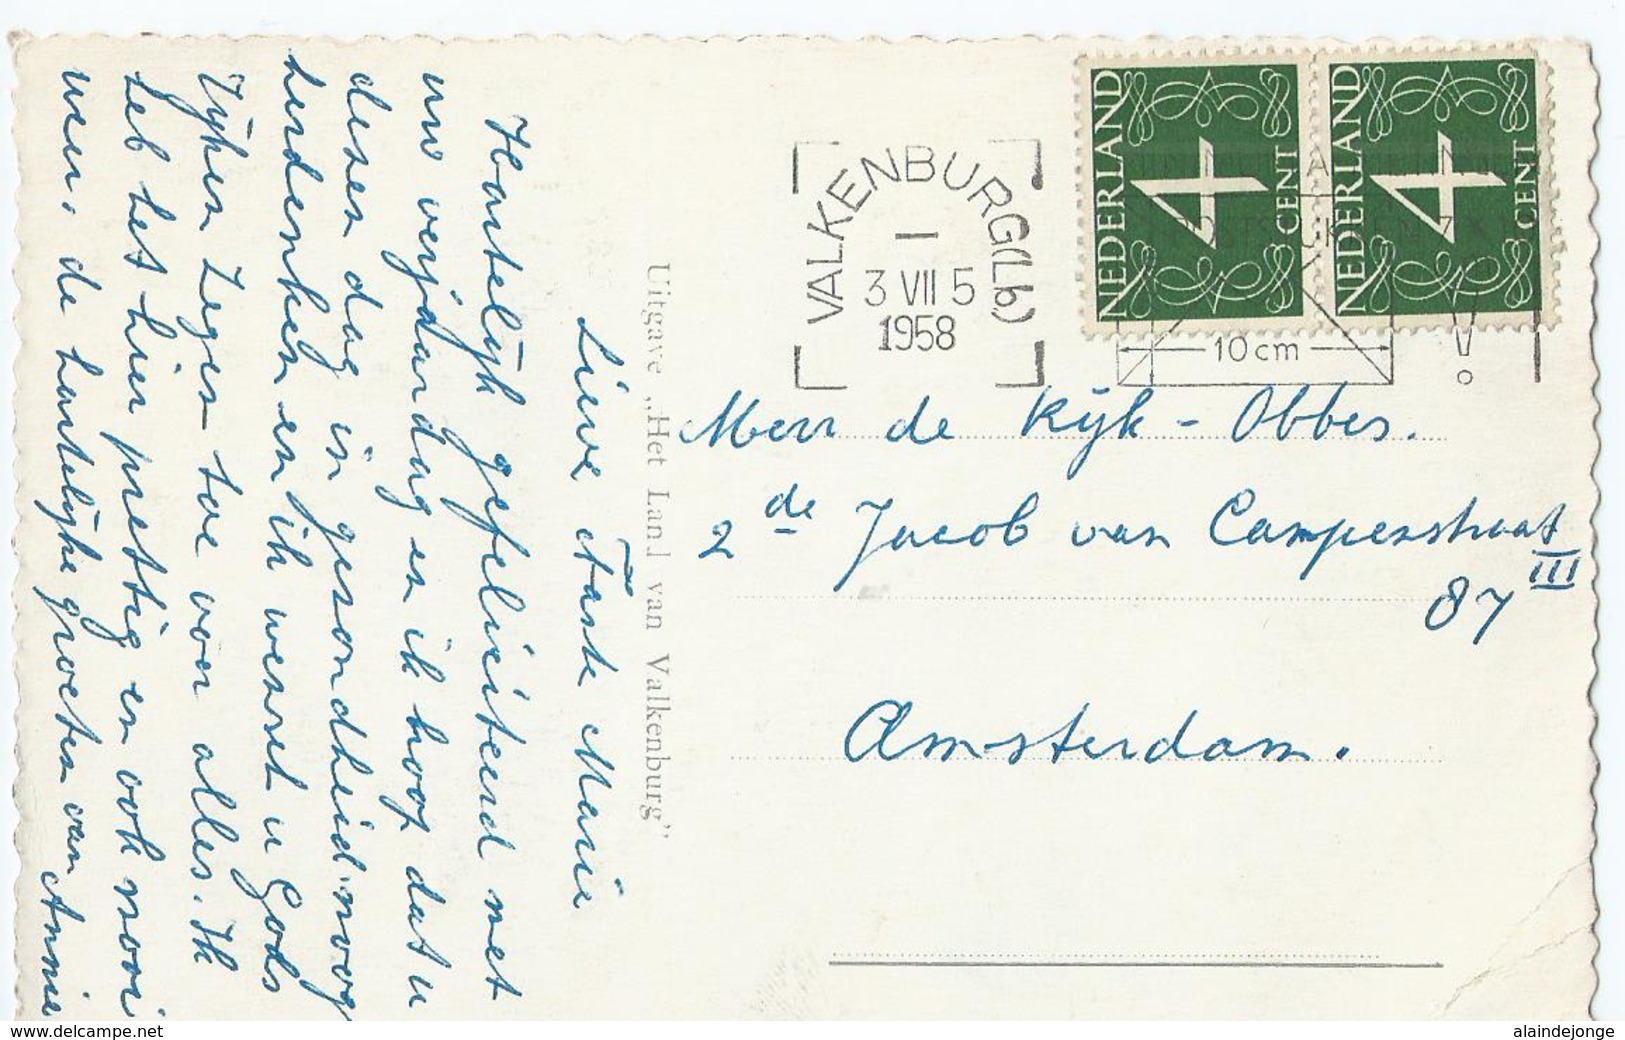 Lieve Tante Marie
Hartelijk gefeliciteerd met
uw verjaardag en ik hoop dat u
dezen dag in gezondheid nog
herdenken en ik wenst u Gods
rijken Zegen toe voor alles. Ik
heb het hier prettig en ook mooi
weer, de hartelijke groeten van Annie
Uitgave „Het Land van Valkenburg”
VALKENBURG(Lb)
I
3 VII 5
1958
NEDERLAND
4
CENT
NEDERLAND
4
CENT
10 cm
!
Mevr de Rijk - Obbes.
2de Jacob van Campenstraat
87 III
Amsterdam.
www.delcampe.net
alaindejonge